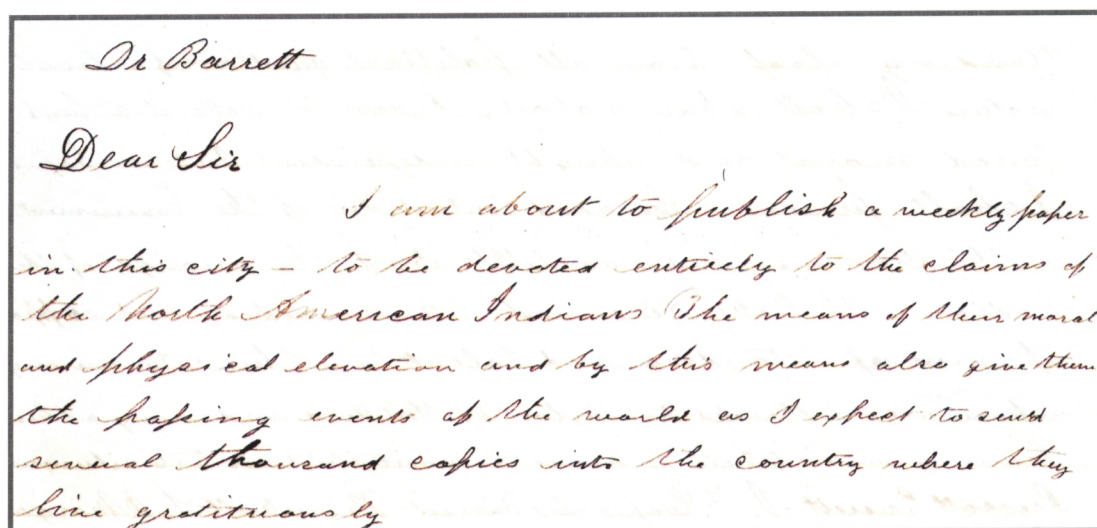 Dr Barrett
Dear Sir
I am about to publish a weekly paper
in this city – to be devoted entirely to the claims of
the North American Indians The means of their moral
and physical elevation and by this means also give them
the passing events of the world as I expect to send
several thousand copies into the country where they
live gratituously